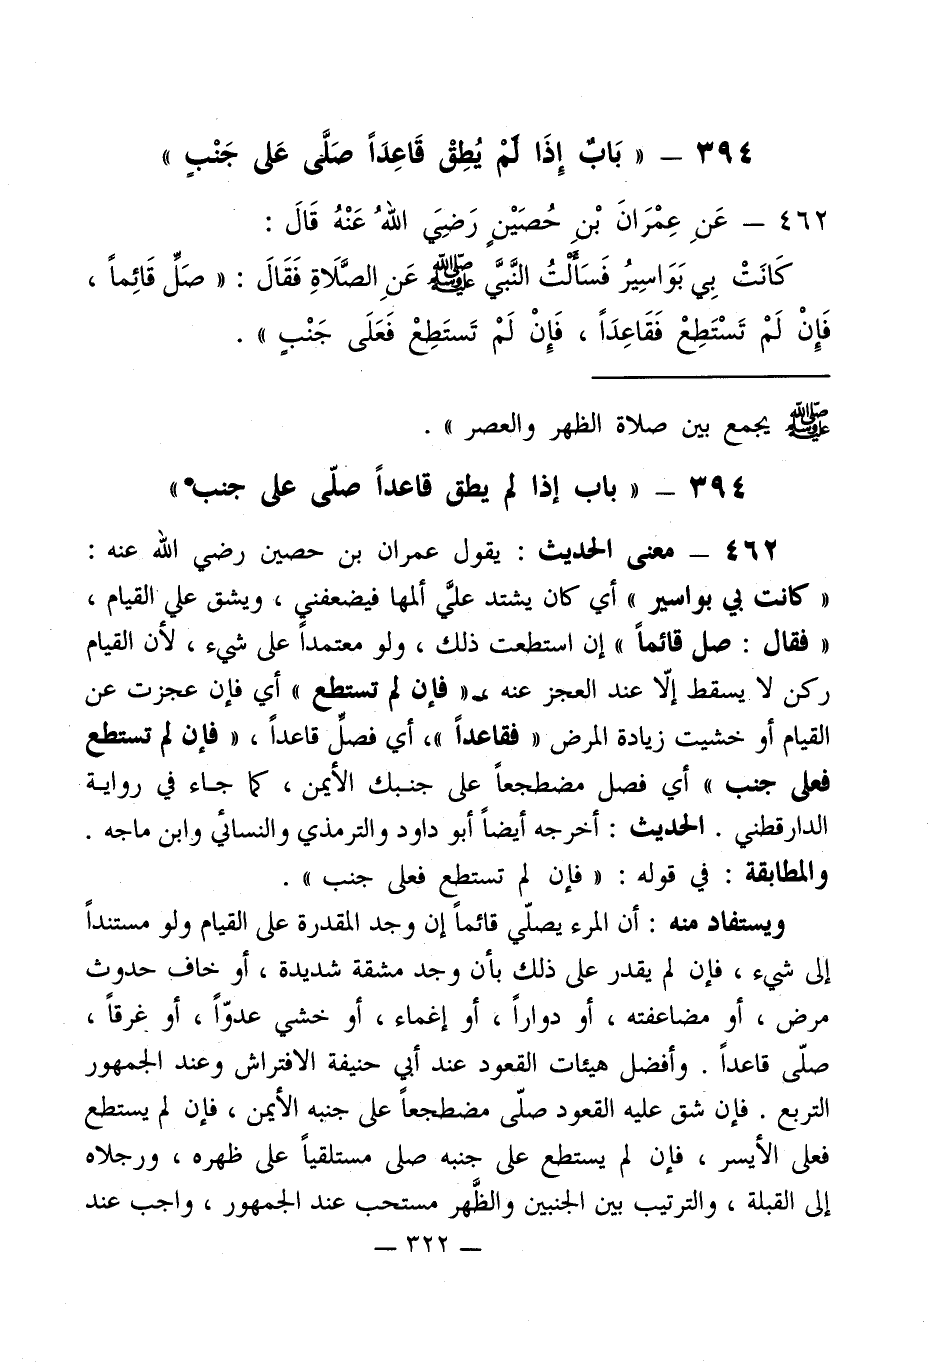 ٣٩٤ – « بَابٌ إِذَا لَمْ يُطِقْ قَاعِدَاً صَلَّى عَلى جَنْبٍ »
٤٦٢ – عَنِ عِمْرَانَ بْنِ حُصَيْنٍ رَضِيَ اللهُ عَنْهُ قَالَ :
كَانَتْ بِي بَوَاسِيرُ فَسَأَلْتُ النَّبِيَّ ﷺ عَنِ الصَّلَاةِ فَقَالَ : « صَلِّ قَائِماً ،
فَإِنْ لَمْ تَسْتَطِعْ فَقَاعِدَاً ، فَإِنْ لَمْ تَستَطِعْ فَعَلَى جَنْبٍ » .
ﷺ يجمع بين صلاة الظهر والعصر » .
٣٩٤ – « باب إذا لم يطق قاعداً صلّى على جنب »
٤٦٢ – معنى الحديث : يقول عمران بن حصين رضي الله عنه :
« كانت بي بواسير » أي كان يشتد عليَّ ألمها فيضعفني ، ويشق علي القيام ،
« فقال : صل قائماً » إن استطعت ذلك ، ولو معتمداً على شيء ، لأن القيام
ركن لا يسقط إلّا عند العجز عنه « فإن لم تستطع » أي فإن عجزت عن
القيام أو خشيت زيادة المرض « فقاعداً »، أي فصلِّ قاعداً ، « فإن لم تستطع
فعلى جنب » أي فصل مضطجعاً على جنبك الأيمن ، كما جاء في رواية
الدارقطني . الحديث : أخرجه أيضاً أبو داود والترمذي والنسائي وابن ماجه .
والمطابقة : في قوله : « فإن لم تستطع فعلى جنب » .
ويستفاد منه : أن المرء يصلّي قائماً إن وجد المقدرة على القيام ولو مستنداً
إلى شيء ، فإن لم يقدر على ذلك بأن وجد مشقة شديدة ، أو خاف حدوث
مرض ، أو مضاعفته ، أو دواراً ، أو إغماء ، أو خشي عدوّاً ، أو غرقاً ،
صلّى قاعداً . وأفضل هيئات القعود عند أبي حنيفة الافتراش وعند الجمهور
التربع . فإن شق عليه القعود صلّى مضطجعاً على جنبه الأيمن ، فإن لم يستطع
فعلى الأيسر ، فإن لم يستطع على جنبه صلى مستلقياً على ظهره ، ورجلاه
إلى القبلة ، والترتيب بين الجنبين والظَّهر مستحب عند الجمهور ، واجب عند
– ٣٢٢ –